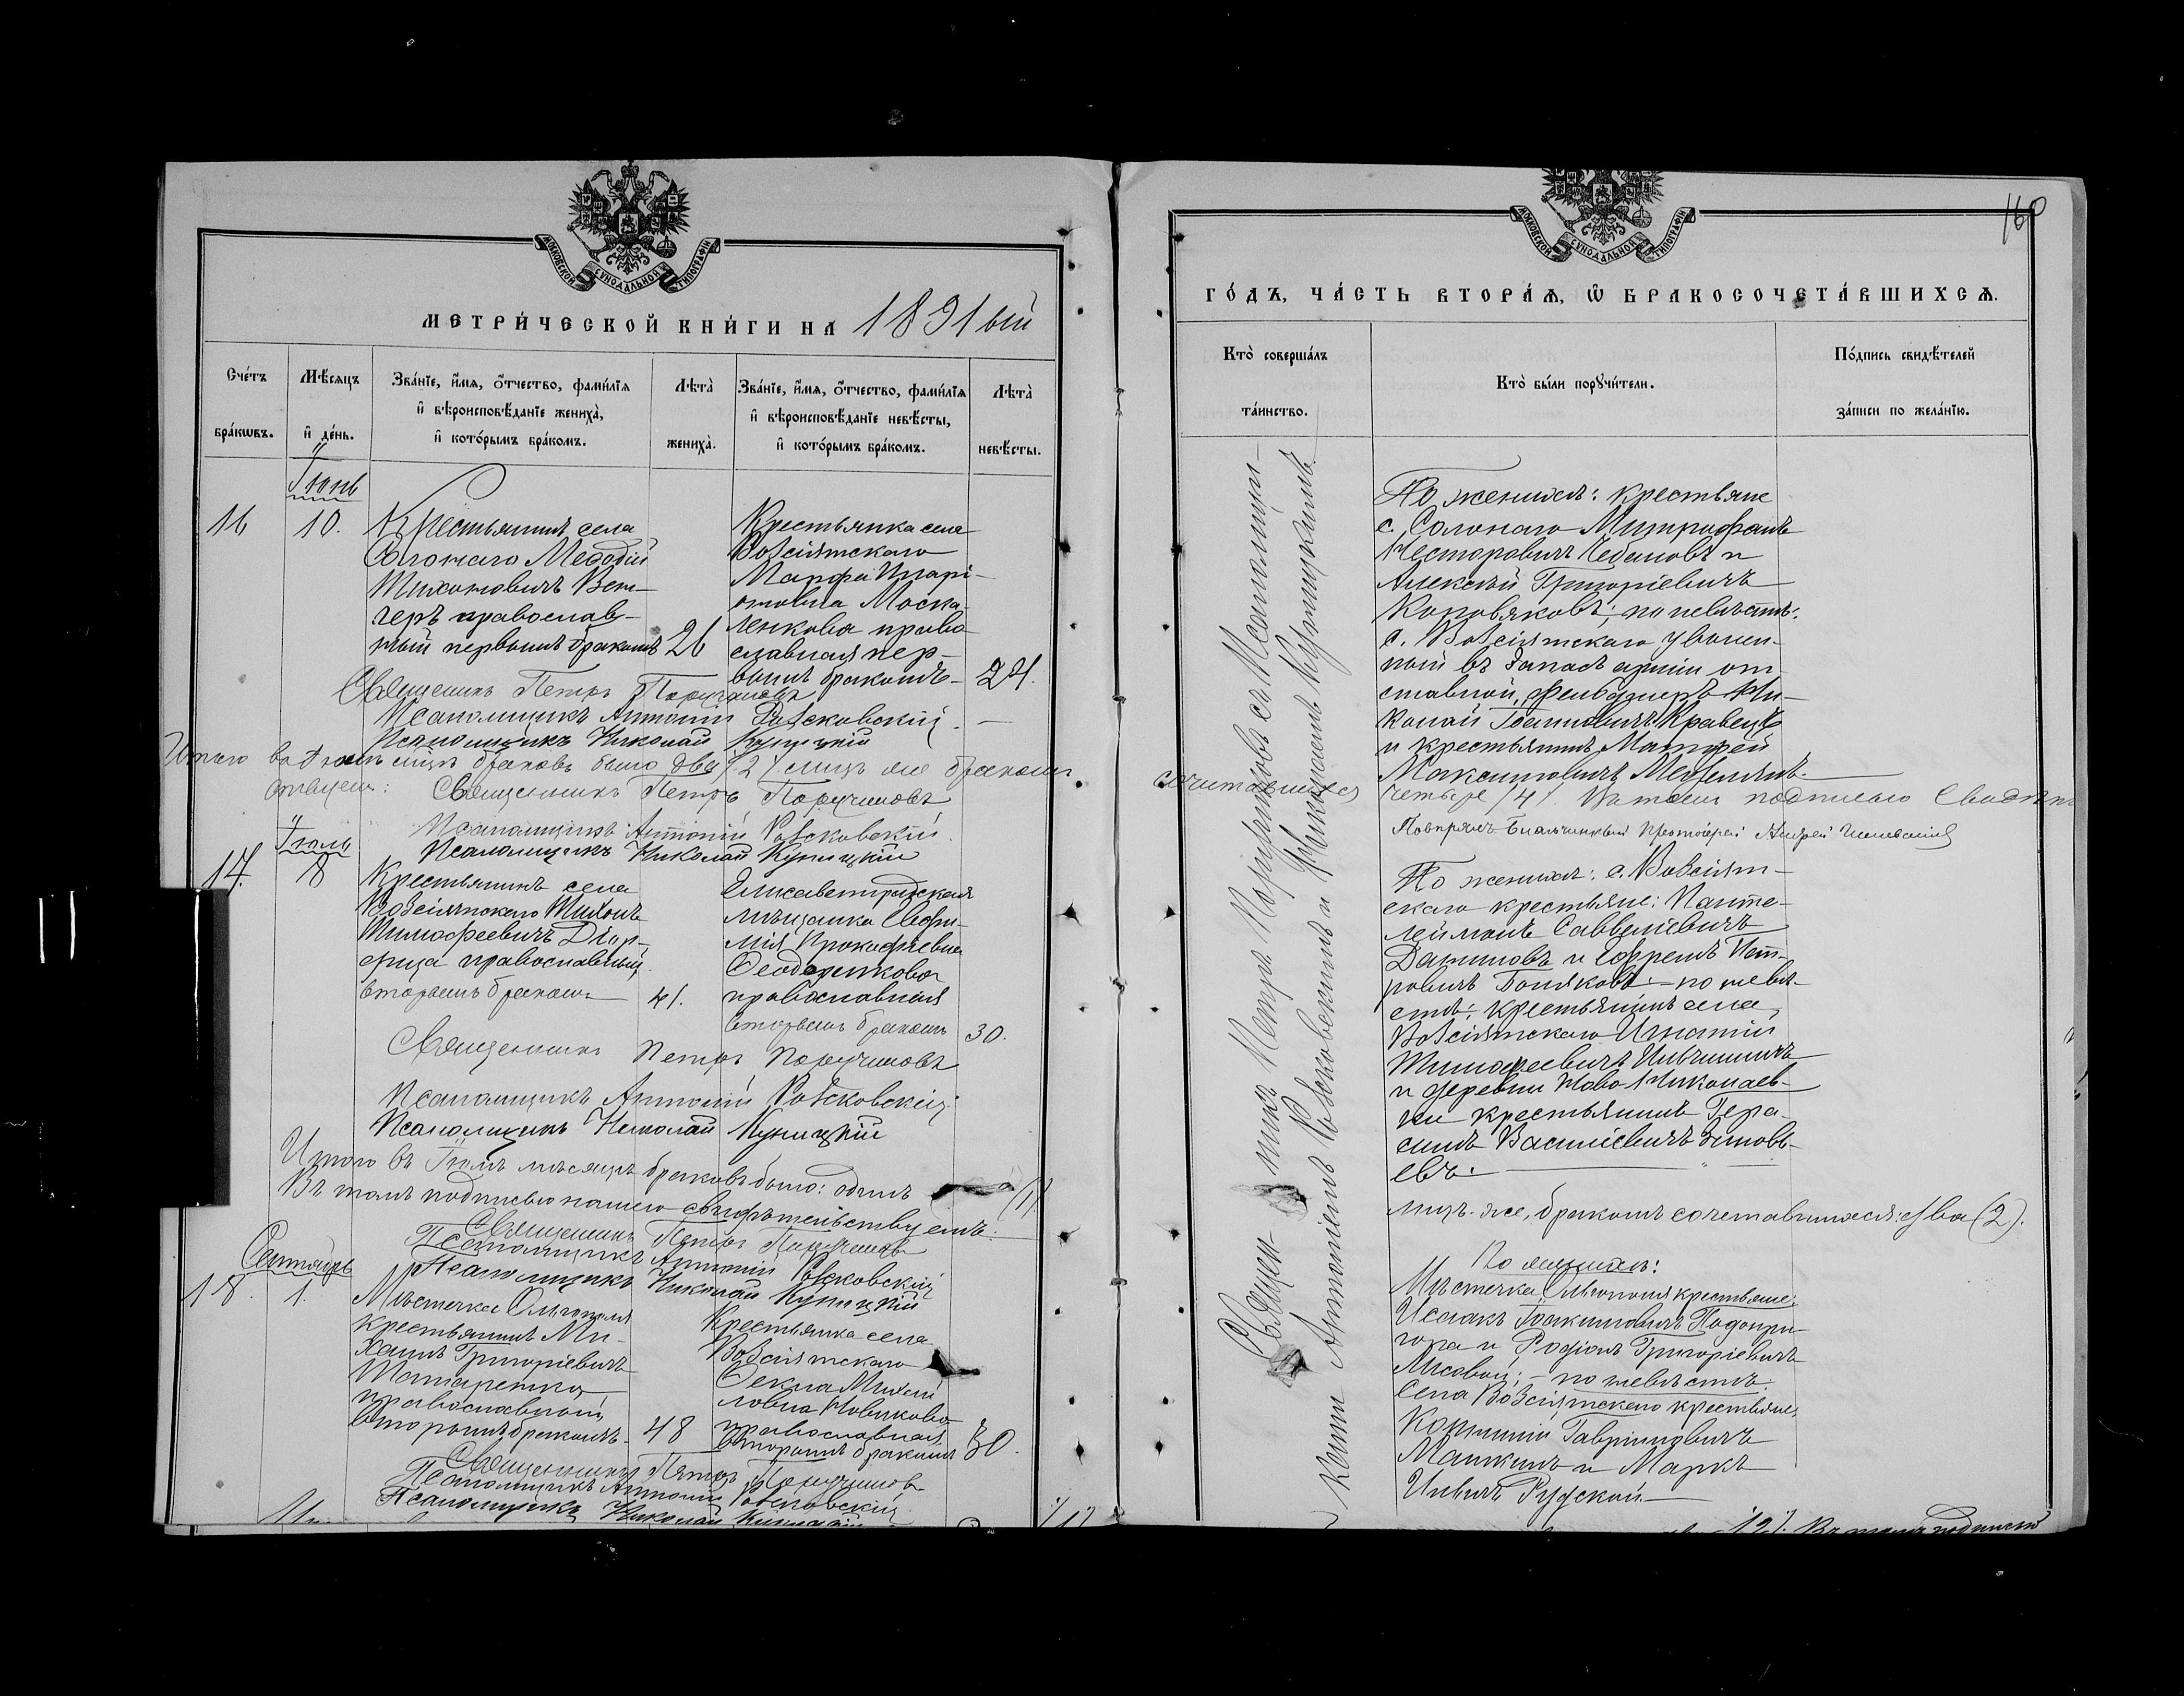 МОСКОВСКОЙ СѴНОДАЛЬНОЙ ТИПОГРАФІИ
МЕТРИ́ЧЕСКОЙ КНИ́ГИ НА 1891 ый
Сче́тъ бра́кѡвъ.
Мѣ́сяцъ и҆ де́нь.
Зва́нїе, и҆́мѧ, ѻ҆́тчество, фами́лїѧ и҆ вѣроисповѣ́данїе жениха̀, и҆ кото́рымъ бра́комъ.
Лѣта̀ жениха̀.
Зва́нїе, и҆́мѧ, ѻ҆́тчество, фами́лїѧ и҆ вѣроисповѣ́данїе невѣ́сты, и҆ кото́рымъ бра́комъ.
Лѣта̀ невѣ́сты.
Іюнь
16
10.
Крестьянинъ села
Солонаго Меѳодій
Тихоновичъ Вен-
черъ православ-
ный первымъ бракомъ
26
Крестьянка села
Возсіятскаго
Марфа Илларі-
оновна Моска-
ленкова право-
славная пер-
вымъ бракомъ
24.
Священникъ Петръ Поручиковъ
Псаломщикъ Антоній Розсковскій
Псаломщикъ Николай Куницкій
Итого въ Іюнѣ мѣсяцѣ браковъ было два /2/ лицъ же бракомъ
Священникъ Петръ Поручиковъ
Псаломщикъ Антоній Розсковскій
Псаломщикъ Николай Куницкій
Іюль
17.
8
Крестьянинъ села
Возсіятскаго Тихонъ
Тимофеевичъ
православный
вторымъ бракомъ
41.
Елисаветградская
мѣщанка Евфи-
мія Прокофіевна
Ѳеодоренкова
православная
вторымъ бракомъ
30.
Священникъ Петръ Поручиковъ
Псаломщикъ Антоній Розсковскій
Псаломщикъ Николай Куницкій
Итого въ Іюлѣ мѣсяцѣ браковъ было: одинъ (1).
Въ томъ подписью нашею свидѣтельствуемъ:
Священникъ Петръ Поручиковъ
Псаломщикъ Антоній Розсковскій
Псаломщикъ Николай Куницкій
Сентябрь
18.
1.
Мѣстечка Ольгополя
крестьянинъ Ми-
хаилъ Григоріевичъ
Татаренко
православный
вторымъ бракомъ
48
Крестьянка села
Возсіятскаго
Ѳекла Михай-
ловна Новикова
православная
вторымъ бракомъ
30.
Священникъ Петръ Поручиковъ
Псаломщикъ Антоній Розсковскій
Псаломщикъ Николай Куницкій
160
МОСКОВСКОЙ СѴНОДАЛЬНОЙ ТИПОГРАФІИ
ГО́ДЪ, ЧА́СТЬ ВТОРА́Ѧ, Ѡ҆ БРАКОСОЧЕТА́ВШИХСѦ.
Кто̀ соверша́лъ та́инство.
Кто̀ бы́ли порꙋчи́тели.
По́дпись свидѣ́телей за́писи по жела́нїю.
Священникъ Петръ Поручиковъ съ Псаломщи-
ками Антоніемъ Розсковскимъ и Николаемъ Куницкимъ.
По женихѣ: крестьяне
с. Солонаго Митрофанъ
Несторовичъ Чебановъ и
Алексѣй Григоріевичъ
Коновяковъ; по невѣстѣ:
с. Возсіятскаго уволен-
ный въ запасъ арміи от-
ставной фельдшеръ Ни-
колай Іоанновичъ Кравецъ
и крестьянинъ Матфей
Максимовичъ
сочетавшихся четыре /4/. Въ томъ подписью
Повѣрялъ Благочинный Протоіерей Андрей
По женихѣ: с. Возсіят-
скаго крестьяне: Панте-
леймонъ Савеліевичъ
Даниловъ и Ефремъ Пет-
ровичъ Поляковъ; — по невѣ-
стѣ: крестьянинъ села
Возсіятскаго Игнатій
Тимофеевичъ
и деревни Ново-Николаев-
ки крестьянинъ Гера-
симъ Василіевичъ Зиновь-
евъ.
лицъ же, бракомъ сочетавшихся: два (2).
По женихѣ:
Мѣстечка Ольгополя крестьяне:
Исаакъ Іоакимовичъ Подопри-
гора и Родіонъ Григоріевичъ
Лисовой; — по невѣстѣ:
Села Возсіятскаго крестьяне,
Корнилій Гавріиловичъ
Малкинъ и Маркъ
Рудской.